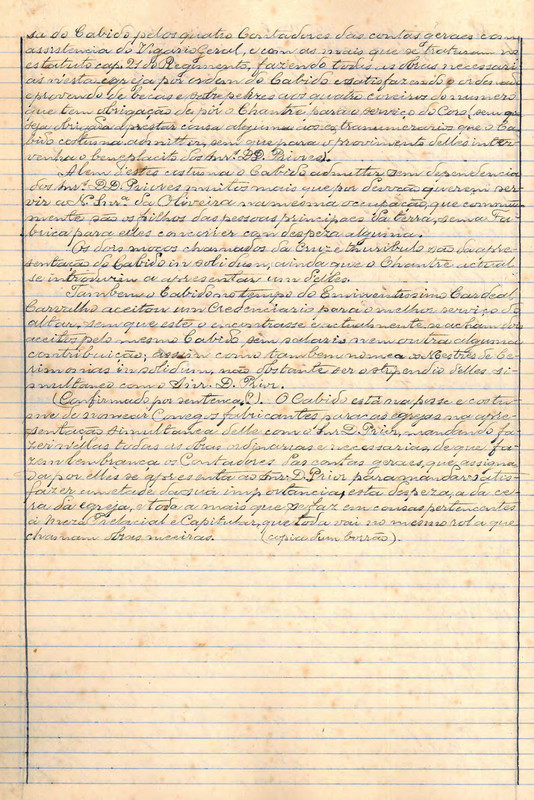 sa do Cabido pelos quatro Contadores das contas geraes com
assistencia do Vigario Geral, e com as mais que se trataram no
estatuto cap. 21 do Regimento, fazendo todas as obras necessari-
as nesta egreja por ordem do Cabido e satisfazendo o ordenado
e provendo de becas e sobrepelizes aos quatro coreiros do numero
que tem obrigação de pôr o Chantre para o serviço do Coro, sem q̃
seja obrigada a prestar cousa alguma aos extranumerarios que o Ca-
bido costuma admittir, sem que para o provimento delles inter-
venha o beneplacito dos Snrs. DD. Priores.
Alem destes costuma o Cabido admittir sem dependencia
dos Snrs. D.D. Priores muitos mais que por devoção querem ser-
vir a N. Snrª da Oliveira na mesma occupação, que commum-
mente são os filhos das pessoas principaes da terra, sem a Fa-
brica para elles concorrer com despeza alguma.
Os dois moços chamados da Cruz e thuribulo são da apre-
sentação do Cabido in solidum, ainda que o Chantre actual
se introduziu a apresentar um delles.
Tambem o Cabido no tempo do Eminentissimo Cardeal
Carvalho aceitou um Credenciario para o melhor serviço do
altar, sem que este o encontrasse e actualmente se acham dois
aceitos pelo mesmo Cabido, sem salario nem outra alguma
contribuição; assim como tambem nomea os Mestres de Ce-
rimonias in solidum, não obstante ser o stipendio delles si-
multaneo com o Snr. D. Prior.
(Confirmado por sentença,). O Cabido está na posse e costu-
me de nomear Conegos fabricantes para as egrejas na apre-
sentação simultanea delle com o Snr. D. Prior, mandando fa-
zer n'ellas todas as obras ordinarias e necessarias, de que fa-
zem lembrança os Contadores das contas geraes, que assigna-
da por elles se apresenta ao Snr. D. Prior para mandar satis-
fazer ametade da sua importancia, esta despeza, a da ce-
ra da egreja, e toda a mais que se faz em cousas pertencentes
á Meza Prelacial e Capitular, que toda vai no mesmo rol a que
chamam obras meeiras. (copia dum borrão).